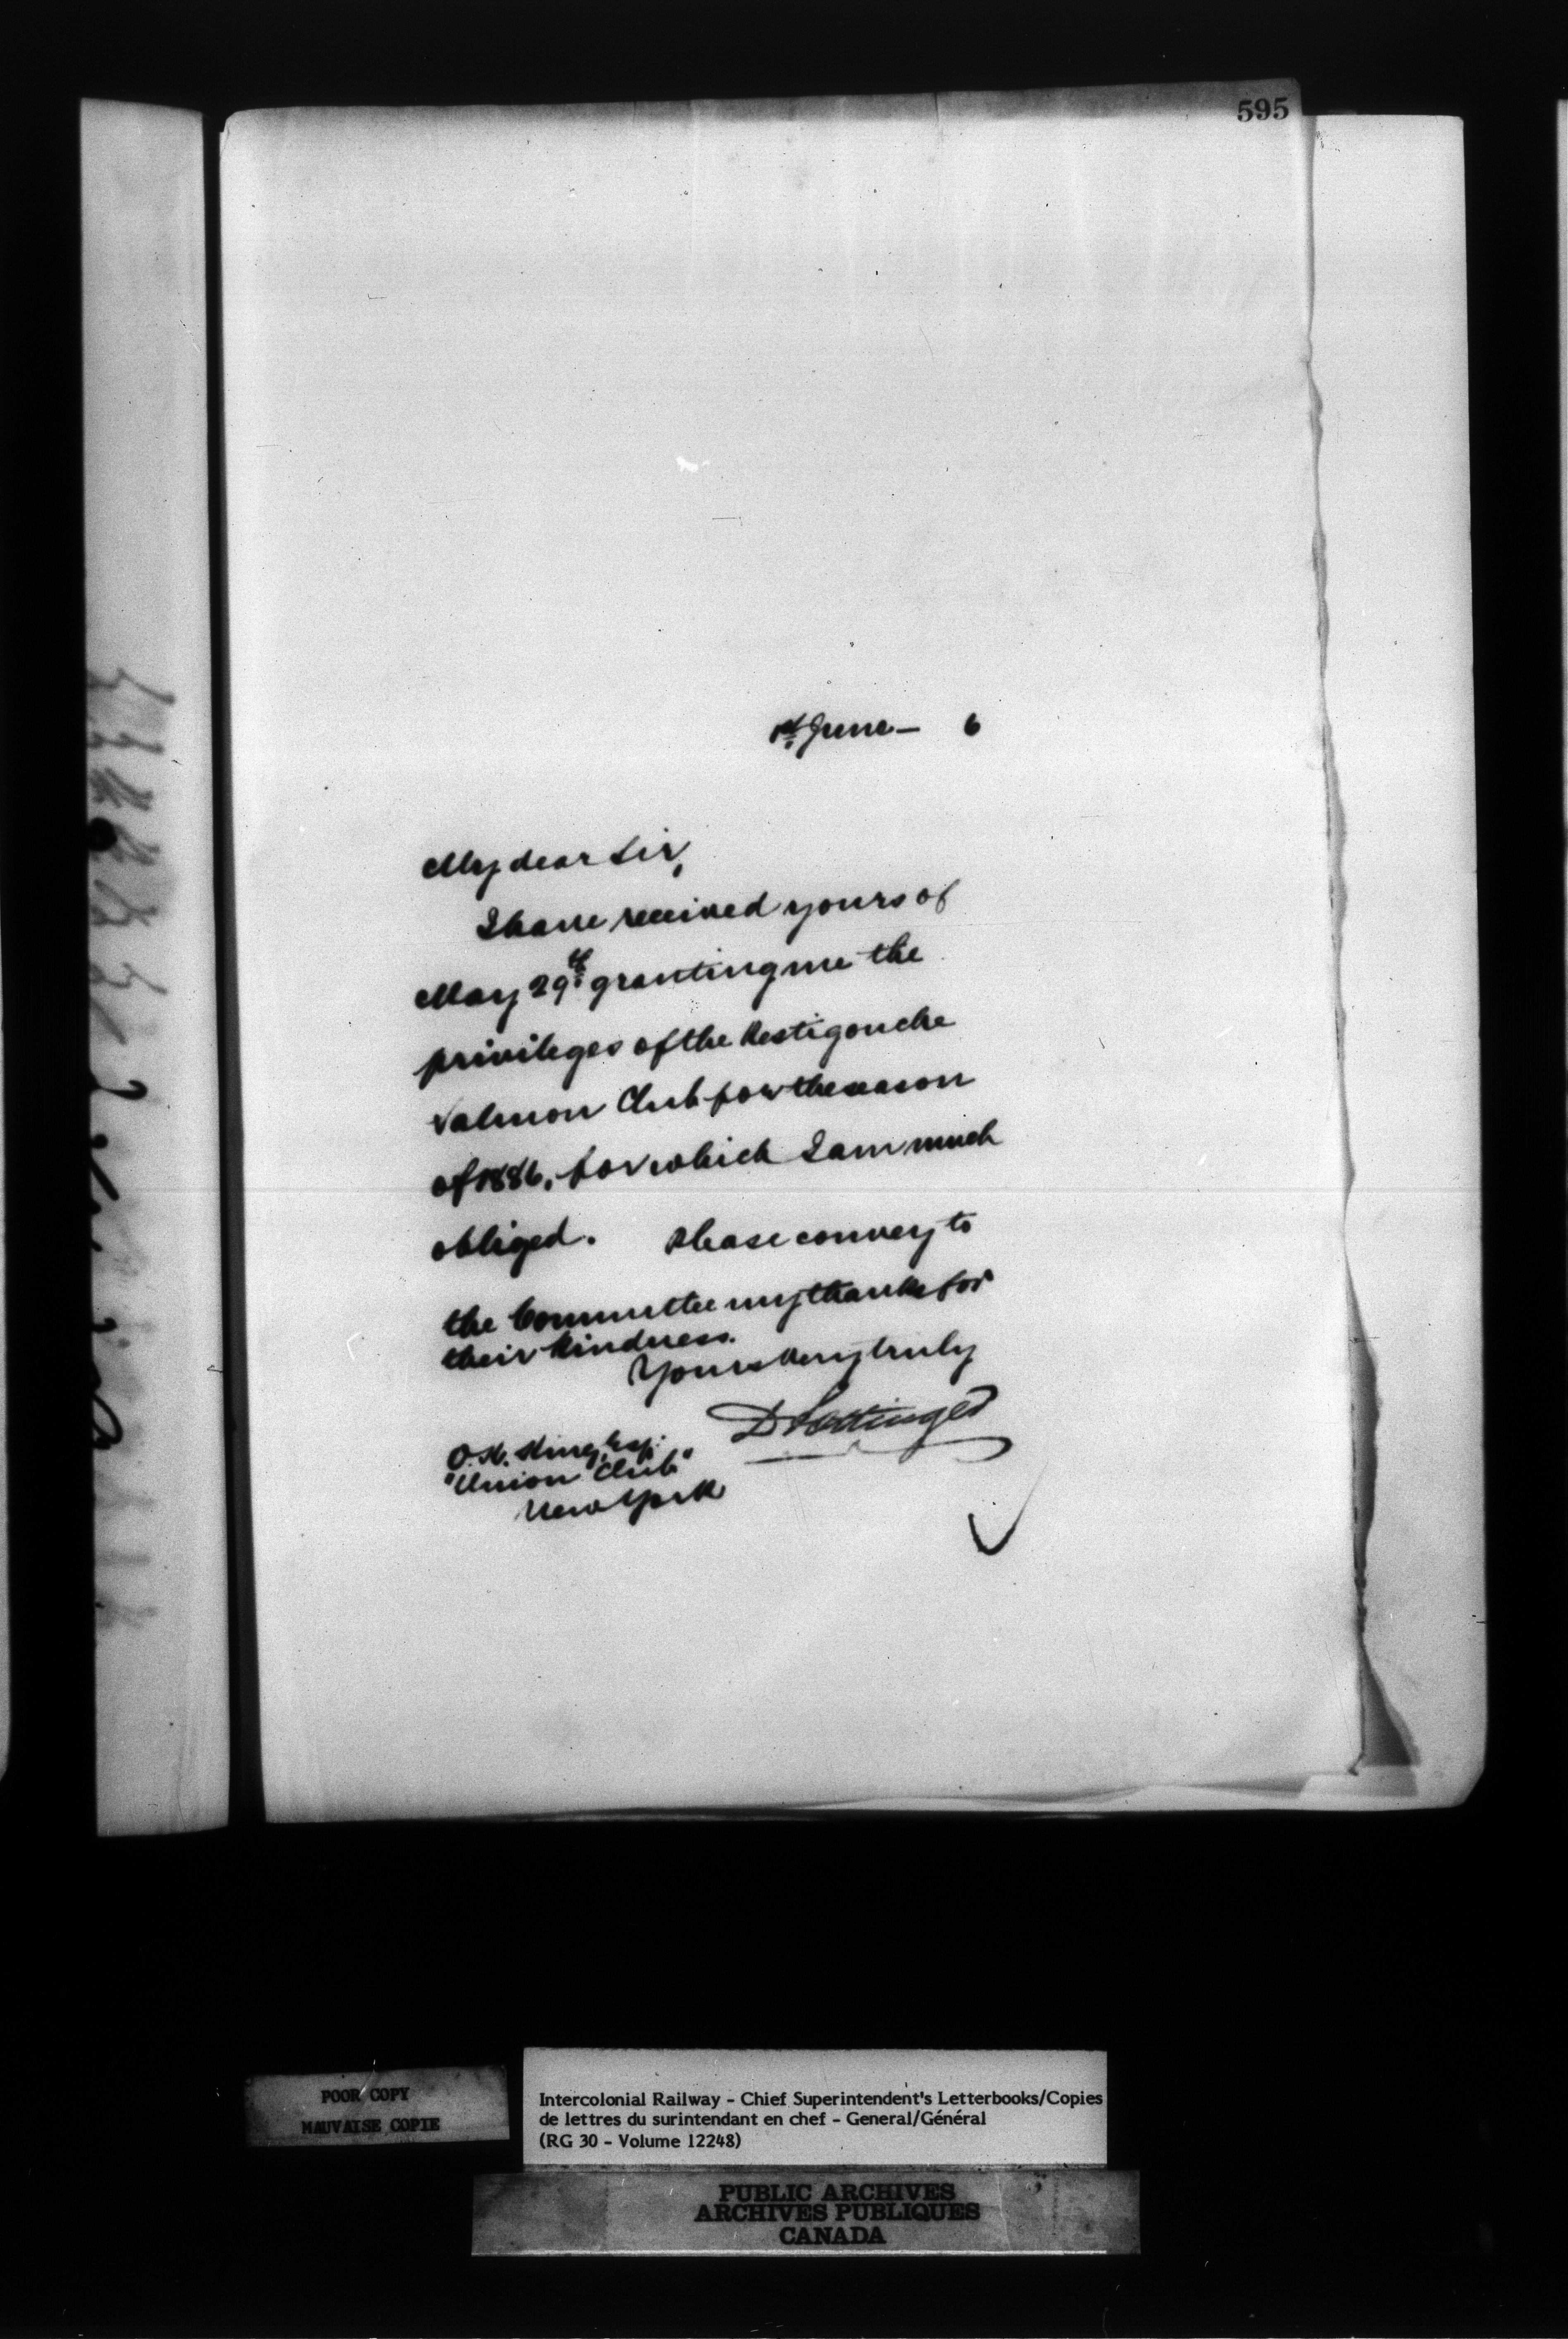 595
1st June – 6
My dear Sir,
I have received yours of
May 29th granting me the
privileges of the Restigouche
Salmon Club for the season
of 1886, for which I am much
obliged. Please convey to
the Committee my thanks for
their kindness.
Yours very truly
D Pottinger
O. K. King, Esq:
"Union Club"
New York
POOR COPY
MAUVAISE COPIE
Intercolonial Railway – Chief Superintendent's Letterbooks/Copies
de lettres du surintendant en chef – General/Général
(RG 30 – Volume 12248)
PUBLIC ARCHIVES
ARCHIVES PUBLIQUES
CANADA